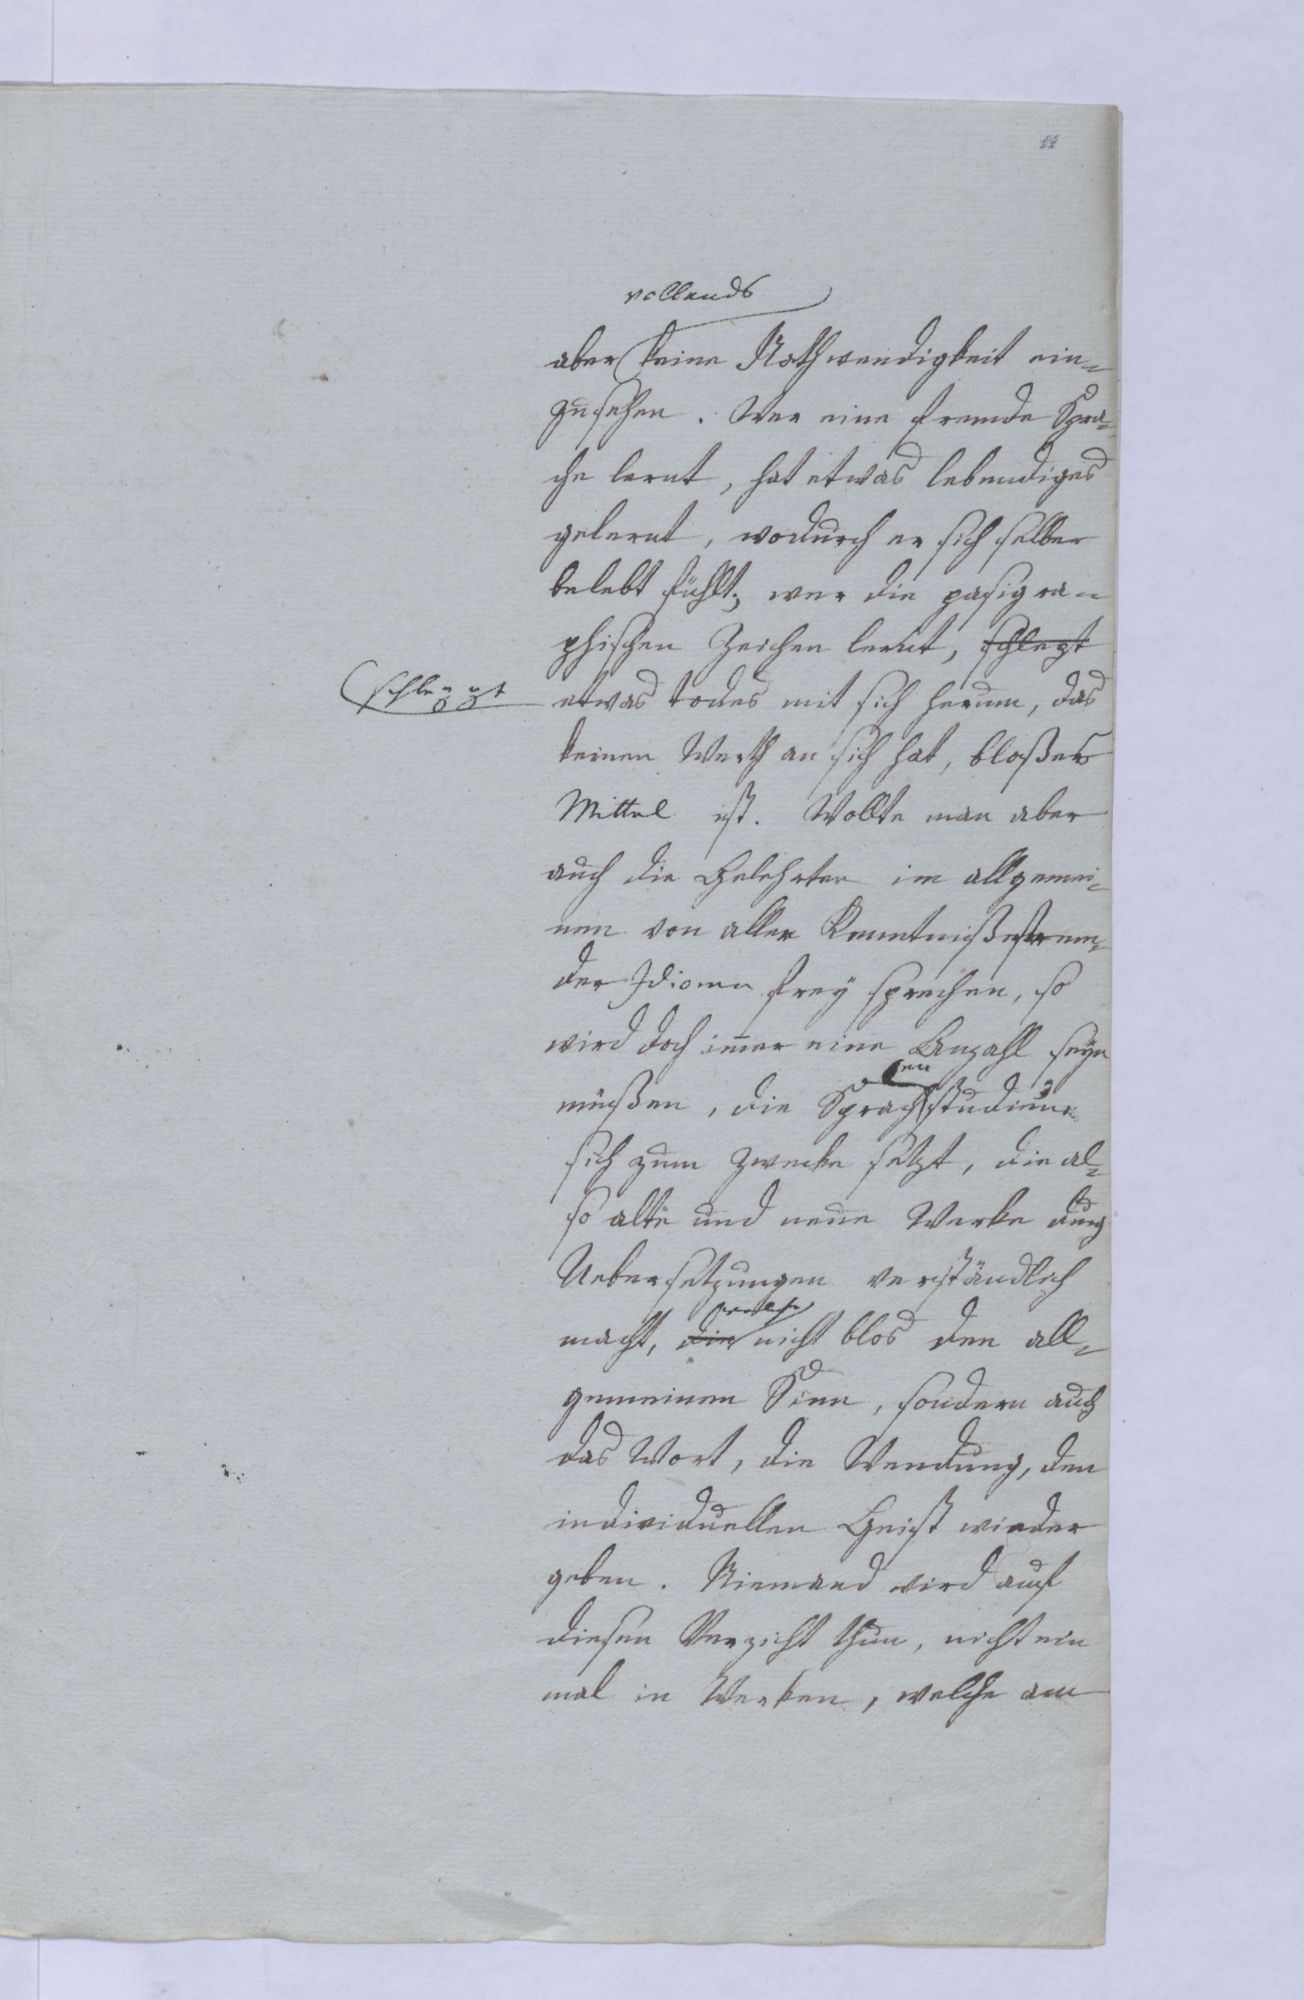 11
vollends
aber keine Nothwendigkeit ein-
zusehen. Wer eine fremde Spra-
che lernt, hat etwas lebendiges
gelernt, wodurch er sich selber
belebt fühlt; wer die pasigra-
phischen Zeichen lernt, schlept
schleppt
etwas todes mit sich herum, das
keinen Werth an sich hat, bloßes
Mittel ist. Wollte man aber
auch die Gelehrten im allgemei-
nen von aller Kenntniß frem-
der Idiome frey sprechen, so
wird doch im̄er eine Anzahl seyn
en
müßen, die Sprachstudium
sich zum Zwecke setzt, die al-
so alte und neue Werke durch
Uebersetzungen verständlich
welche
macht, die nicht blos den all-
gemeinen Sinn, sondern auch
das Wort, die Wendung, den
individuellen Geist wieder
geben. Niemand wird auf
diesen Verzicht thun, nicht ein
mal in Werken, welche am